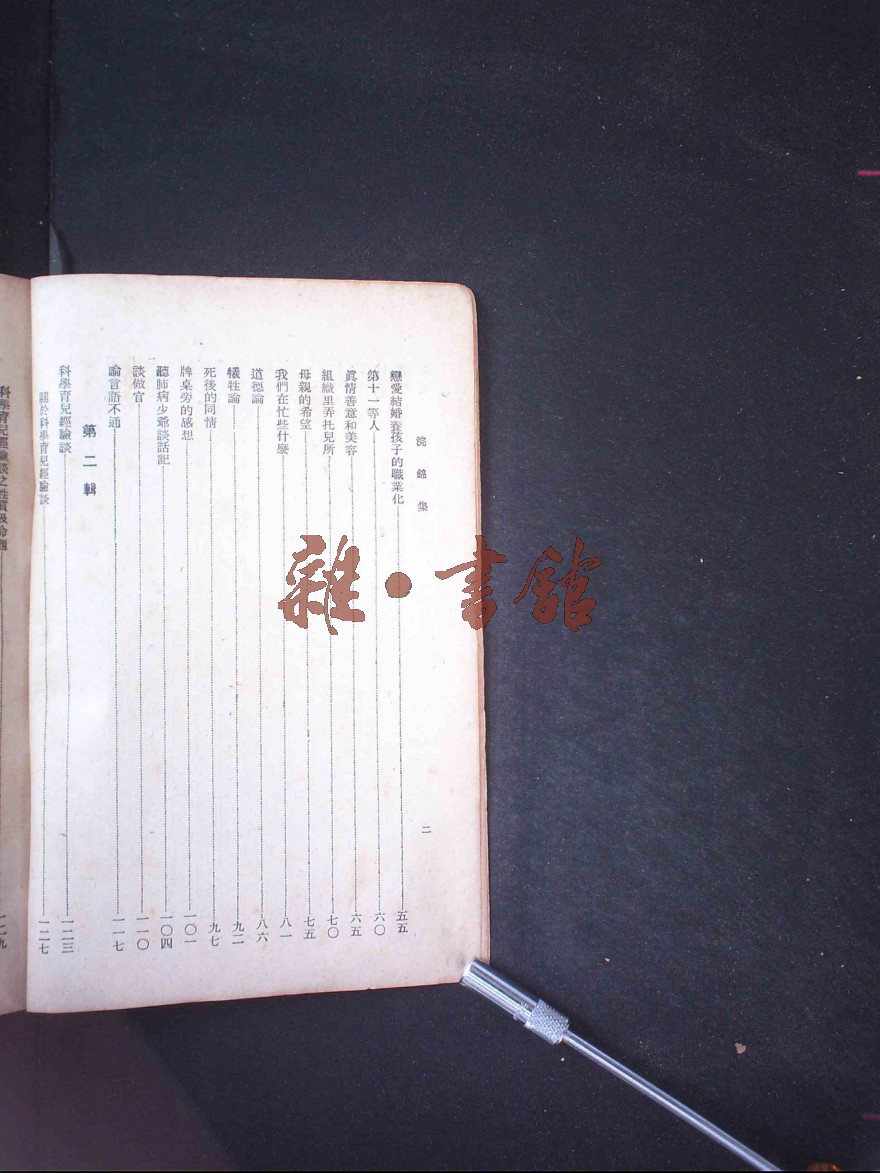 浣錦集
二
戀愛結婚養孩子的職業化 五五
第十一等人 六〇
眞情善意和美容 六五
組織里弄托兒所 七〇
母親的希望 七五
我們在忙些什麼 八一
道德論 八六
犧牲論 九二
死後的同情 九七
牌桌旁的感想 一〇一
聽肺病少爺談話記 一〇四
談做官 一一〇
論言語不通 一一七
第二輯
科學育兒經驗談 一二三
關於科學育兒經驗談 一二七
科學育兒經驗談之性質及命題 一二九
雜·書館